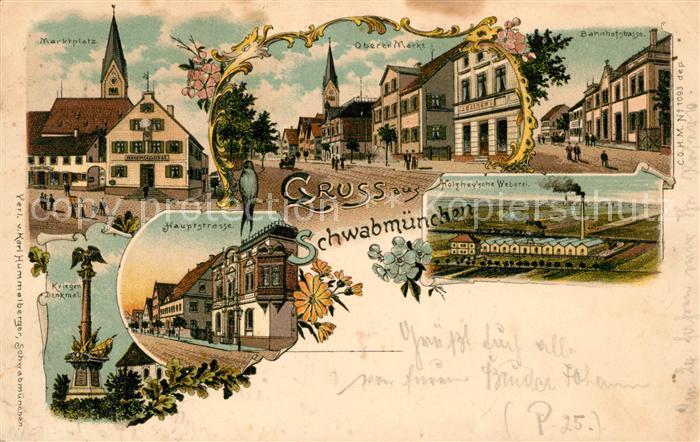 Marktplatz.
Oberer Markt.
Bahnhofstrasse.
C.O.H.M. No 1093 dep.
GRUSS aus
Schwabmünchen
Holzhey'sche Weberei.
Hauptstrasse.
Krieger
Denkmal.
Verl. v. Karl Hummelberger, Schwabmünchen.
Grüßt Euch alle
von Eurem Bruder Johann
(P. 25.)
© copyright shutterstock